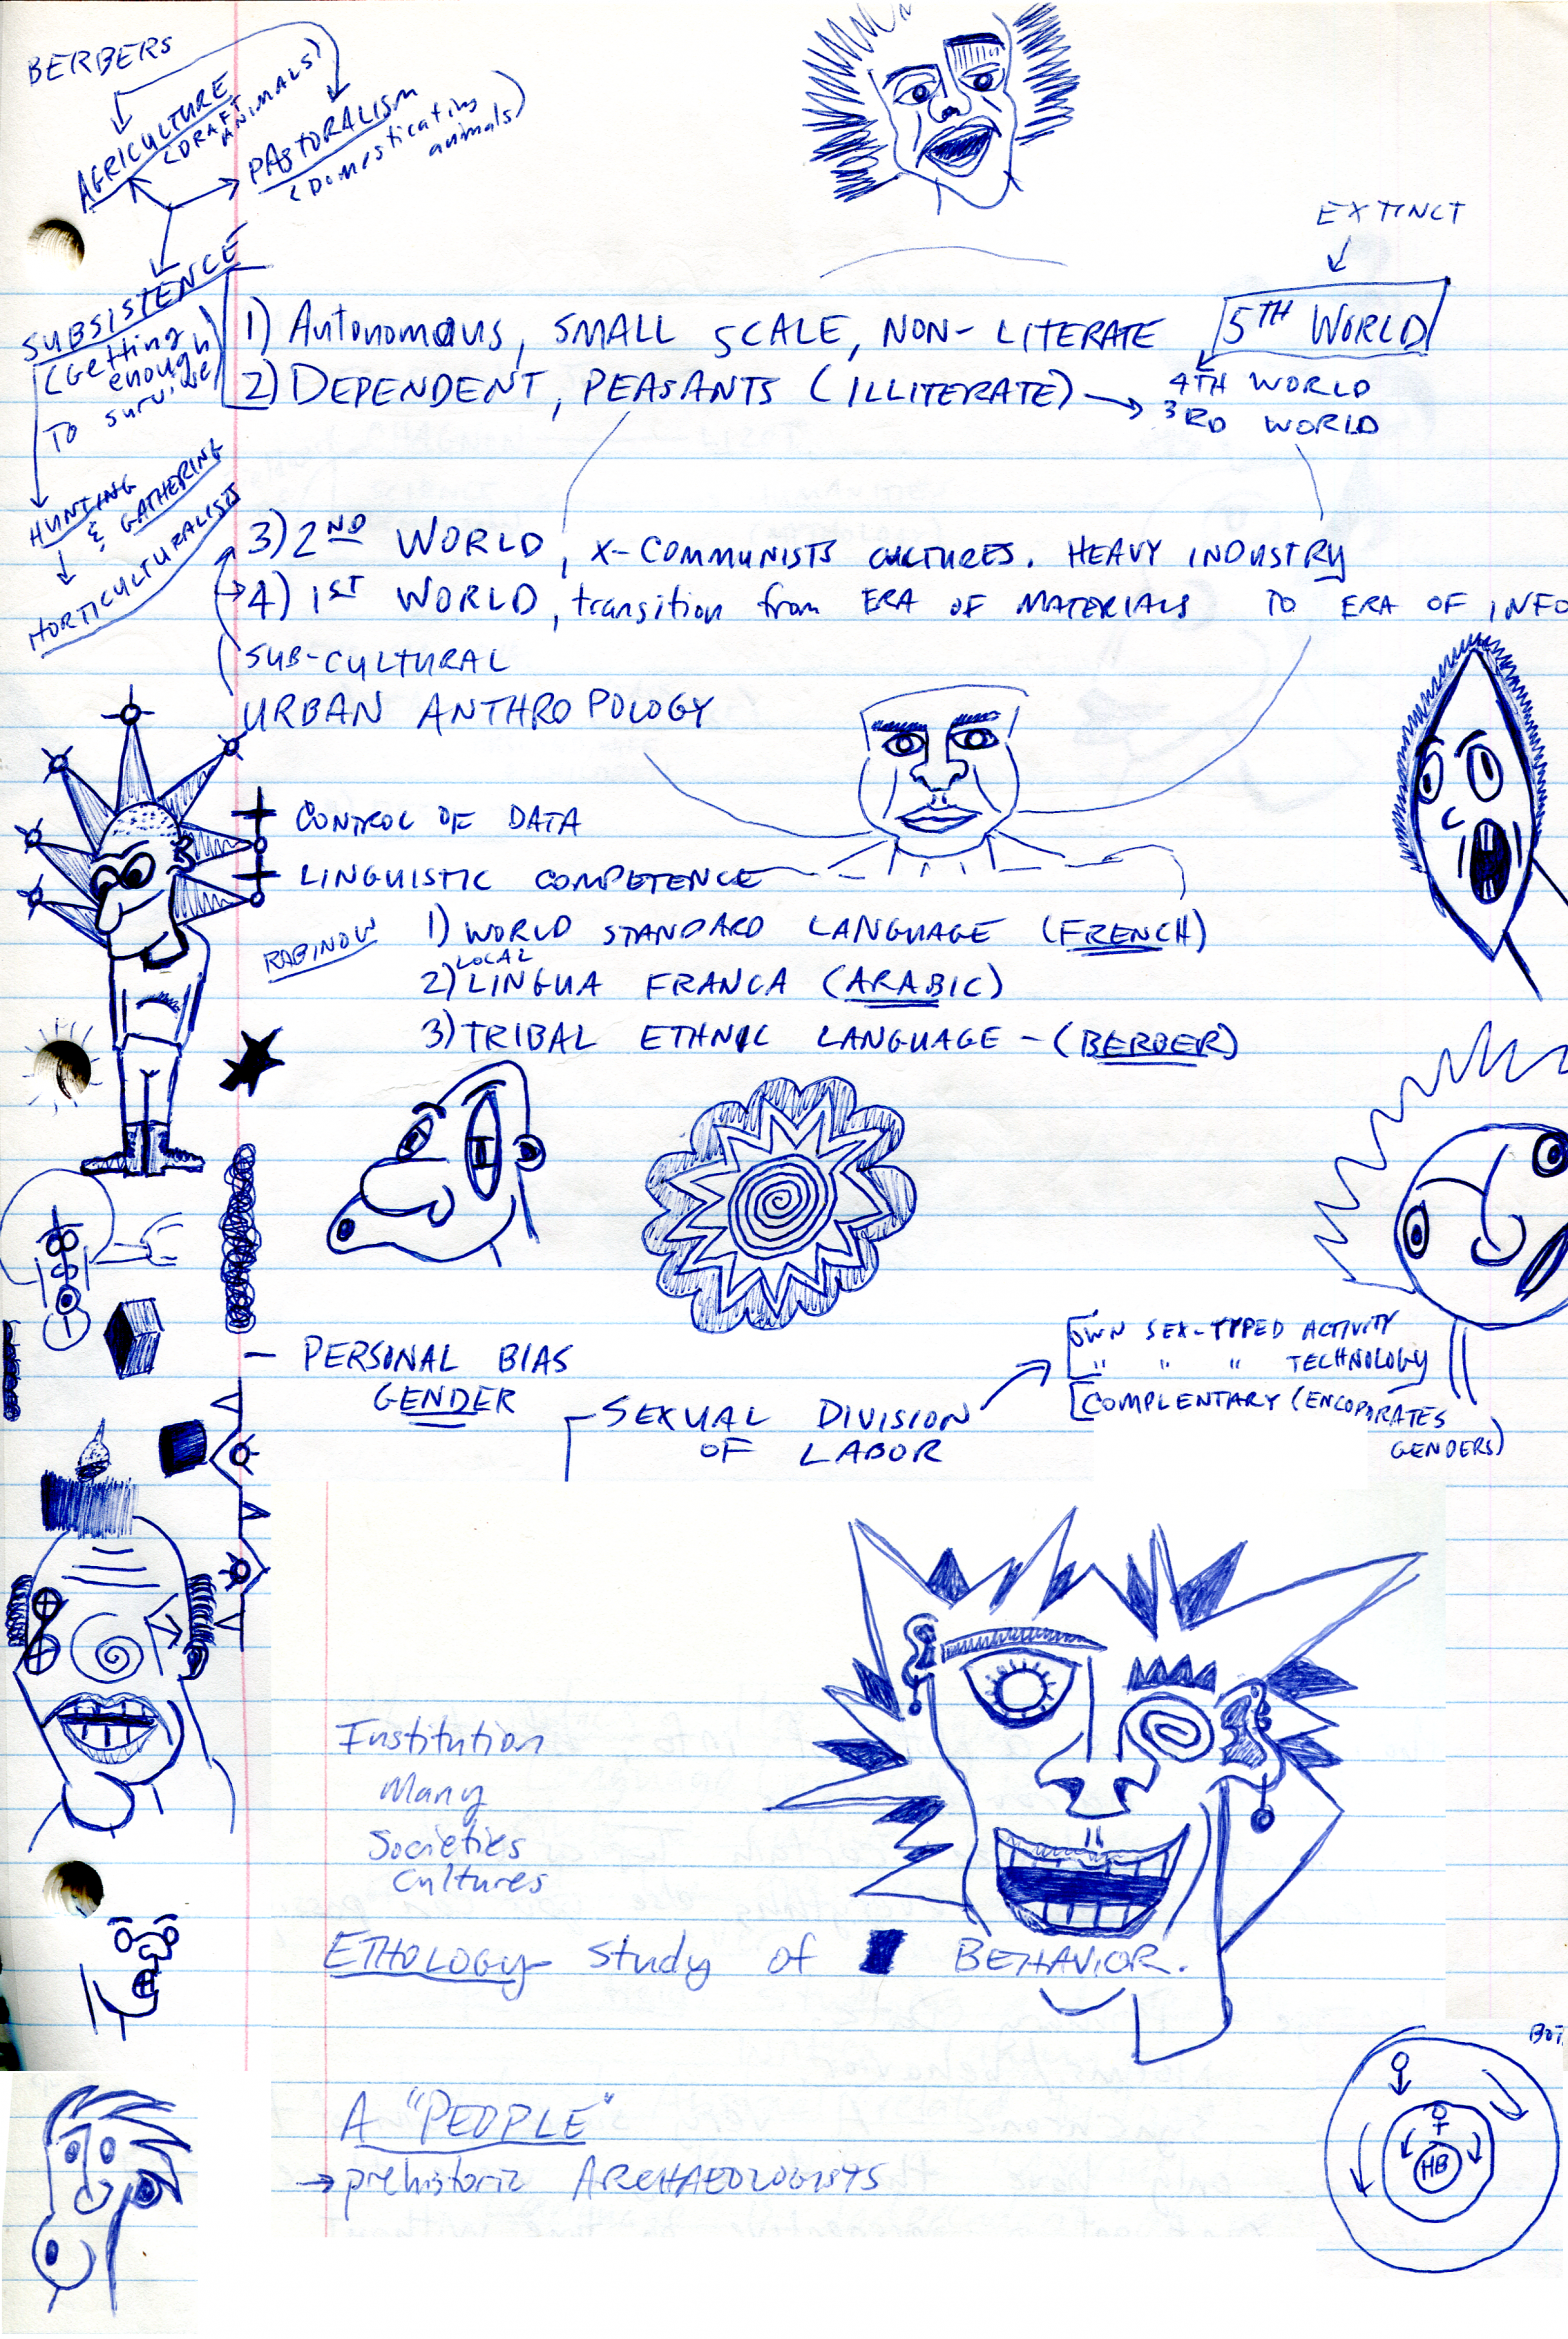 BERBERS
AGRICULTURE
(DRAFT
ANIMALS)
PASTORALISM
(Domesticating
animals)
SUBSISTENCE
(Getting
enough)
To survive
HUNTING
& GATHERING
HORTICULTURALISTS
EXTINCT
1) Autonomous, SMALL SCALE, NON-LITERATE 5TH WORLD
2) DEPENDENT, PEASANTS (ILLITERATE) → 4TH WORLD
3RD WORLD
3) 2ND WORLD, X-COMMUNISTS CULTURES. HEAVY INDUSTRY
4) 1ST WORLD, transition from ERA OF MATERIALS TO ERA OF INFO
SUB-CULTURAL
URBAN ANTHROPOLOGY
+ CONTROL OF DATA
+ LINGUISTIC COMPETENCE
RABINOW
1) WORLD STANDARD LANGUAGE (FRENCH)
LOCAL
2) LINGUA FRANCA (ARABIC)
3) TRIBAL ETHNIC LANGUAGE - (BERBER)
- PERSONAL BIAS
GENDER
SEXUAL DIVISION
OF LABOR
OWN SEX-TYPED ACTIVITY
" " " TECHNOLOGY
COMPLENTARY (ENCOPORATES
GENDERS)
Institution
Many
Societies
Cultures
ETHOLOGY - Study of BEHAVIOR.
A "PEOPLE"
→ prehistoric ARCHAEOLOGISTS
HB